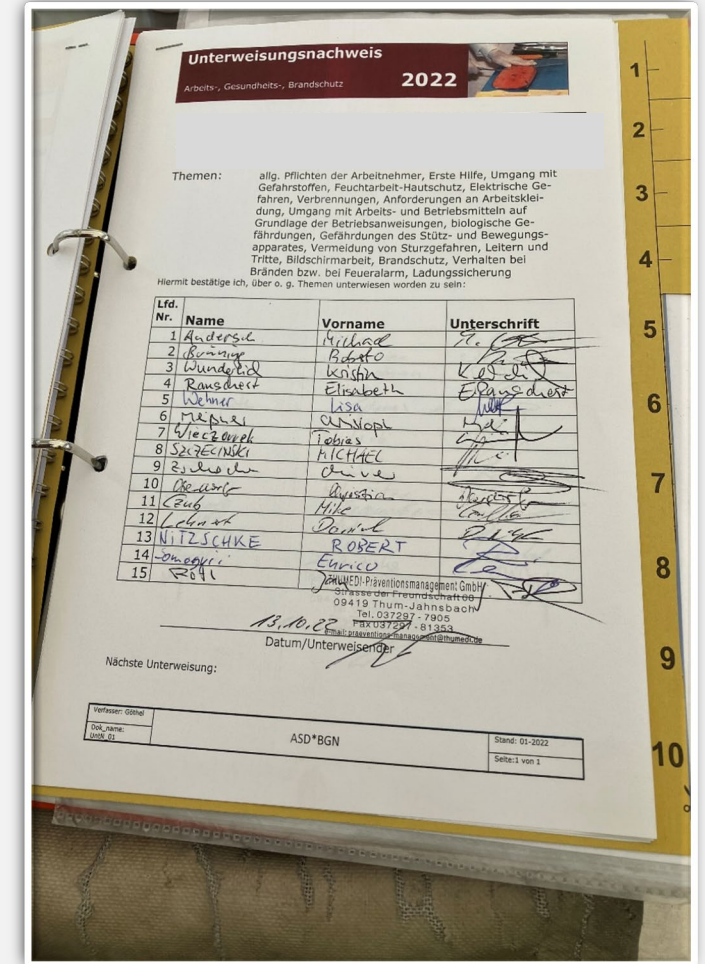 Unterweisungsnachweis
Arbeits-, Gesundheits-, Brandschutz
2022
Themen: allg. Pflichten der Arbeitnehmer, Erste Hilfe, Umgang mit
Gefahrstoffen, Feuchtarbeit-Hautschutz, Elektrische Ge-
fahren, Verbrennungen, Anforderungen an Arbeitsklei-
dung, Umgang mit Arbeits- und Betriebsmitteln auf
Grundlage der Betriebsanweisungen, biologische Ge-
fährdungen, Gefährdungen des Stütz- und Bewegungs-
apparates, Vermeidung von Sturzgefahren, Leitern und
Tritte, Bildschirmarbeit, Brandschutz, Verhalten bei
Bränden bzw. bei Feueralarm, Ladungssicherung
Hiermit bestätige ich, über o. g. Themen unterwiesen worden zu sein:
Lfd.
Nr. Name Vorname Unterschrift
1 Michael
2
3 Wunderlich Kristin
4 Rauschert Elisabeth
5 Wehner Lisa
6 Christoph
7 Wieczorek Tobias
8 SZCZECINSKI MICHAEL
9
10
11 Czub Mike
12 Lehnert Daniel
13 NITZSCHKE ROBERT
14 Enrico
15
THUMEDI-Präventionsmanagement GmbH
Strasse der Freundschaft
09419 Thum-Jahnsbach
Tel. 037297 - 7905
Fax 037297 - 81353
e-mail: praeventions-management@thumedi.de
13.10.22
Datum/Unterweisender
Nächste Unterweisung:
Verfasser: Göthel
Dok_name:
UntN_01
ASD*BGN
Stand: 01-2022
Seite:1 von 1
1
2
3
4
5
6
7
8
9
10